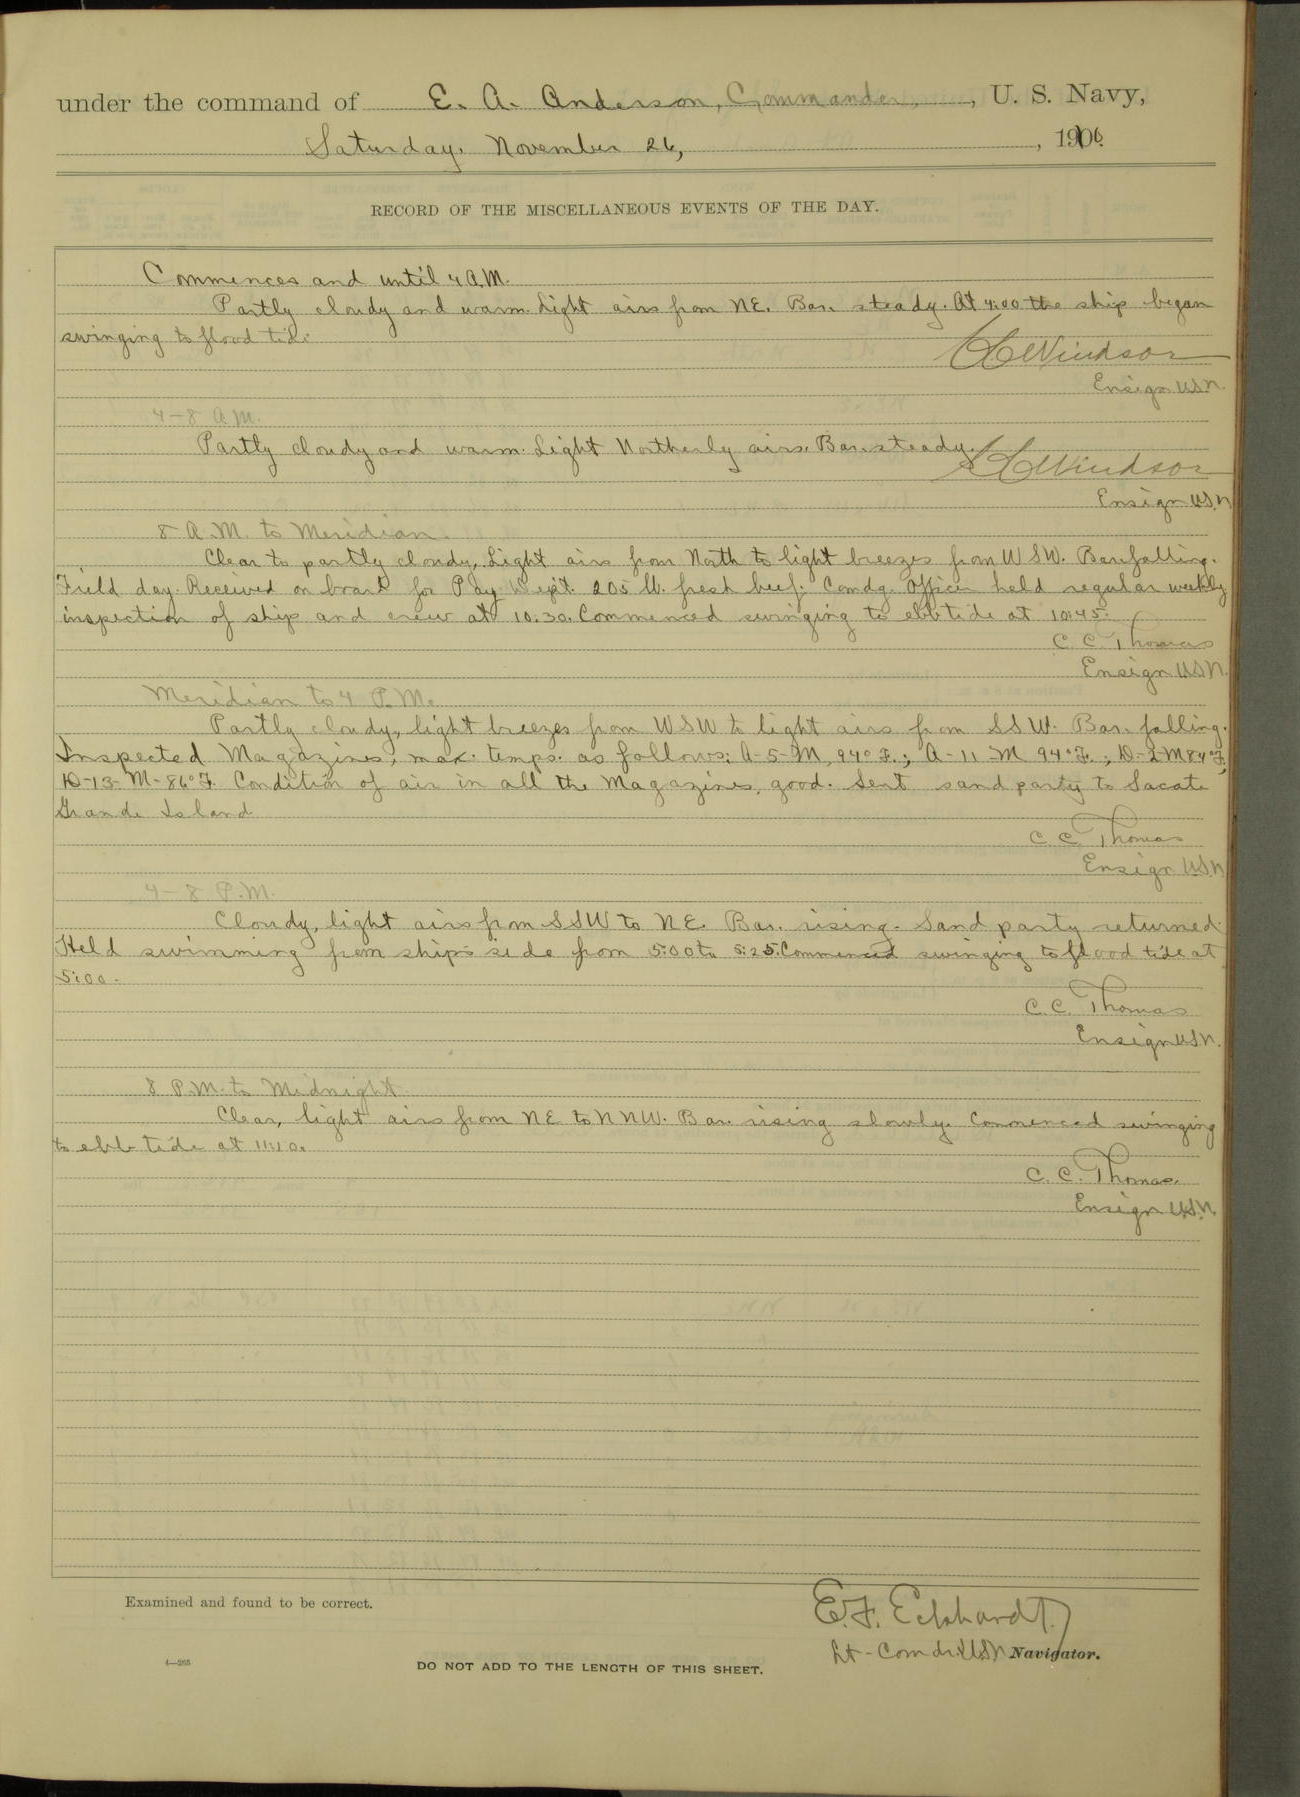 under the command of E. A. Anderson, Commander, U. S. Navy,
Saturday, November 26, 1910.
RECORD OF THE MISCELLANEOUS EVENTS OF THE DAY.
Commences and until 4 A.M.
Partly cloudy and warm. Light airs from NE. Bar. steady. At 4:00 the ship began
swinging to flood tide.
C C Windsor
Ensign U.S.N.
4-8 A.M.
Partly cloudy and warm. Light Northerly airs. Bar. steady.
C C Windsor
Ensign U.S.N.
8 A.M. to Meridian.
Clear to partly cloudy, Light airs from North to light breezes from WSW. Bar. falling.
Field day. Received on board for Pay Dept. 205 lb. fresh beef. Comdg. Officer held regular weekly
inspection of ship and crew at 10:30. Commenced swinging to ebb tide at 10:45.
C. C. Thomas
Ensign U.S.N.
Meridian to 4 P.M.
Partly cloudy, light breezes from WSW to light airs from SSW. Bar. falling.
Inspected Magazines, max. temps. as follows: A-5-M, 94°F.; A-11-M 94°F.; D-2M 84°F,
D-13-M-86°F. Condition of air in all the Magazines, good. Sent sand party to Sacate
Grande Island
C. C. Thomas
Ensign U.S.N.
4-8 P.M.
Cloudy, light airs from SSW to NE. Bar. rising. Sand party returned.
Held swimming from ship's side from 5:00 to 5:25. Commenced swinging to flood tide at
5:00.
C. C. Thomas
Ensign U.S.N.
8 P.M. to Midnight.
Clear, light airs from NE to NNW. Bar. rising slowly. Commenced swinging
to ebb tide at 11:40.
C. C. Thomas.
Ensign U.S.N.
Examined and found to be correct.
E. F. Eckhardt
Lt-Comdr. U.S.N. Navigator.
4—265
DO NOT ADD TO THE LENGTH OF THIS SHEET.